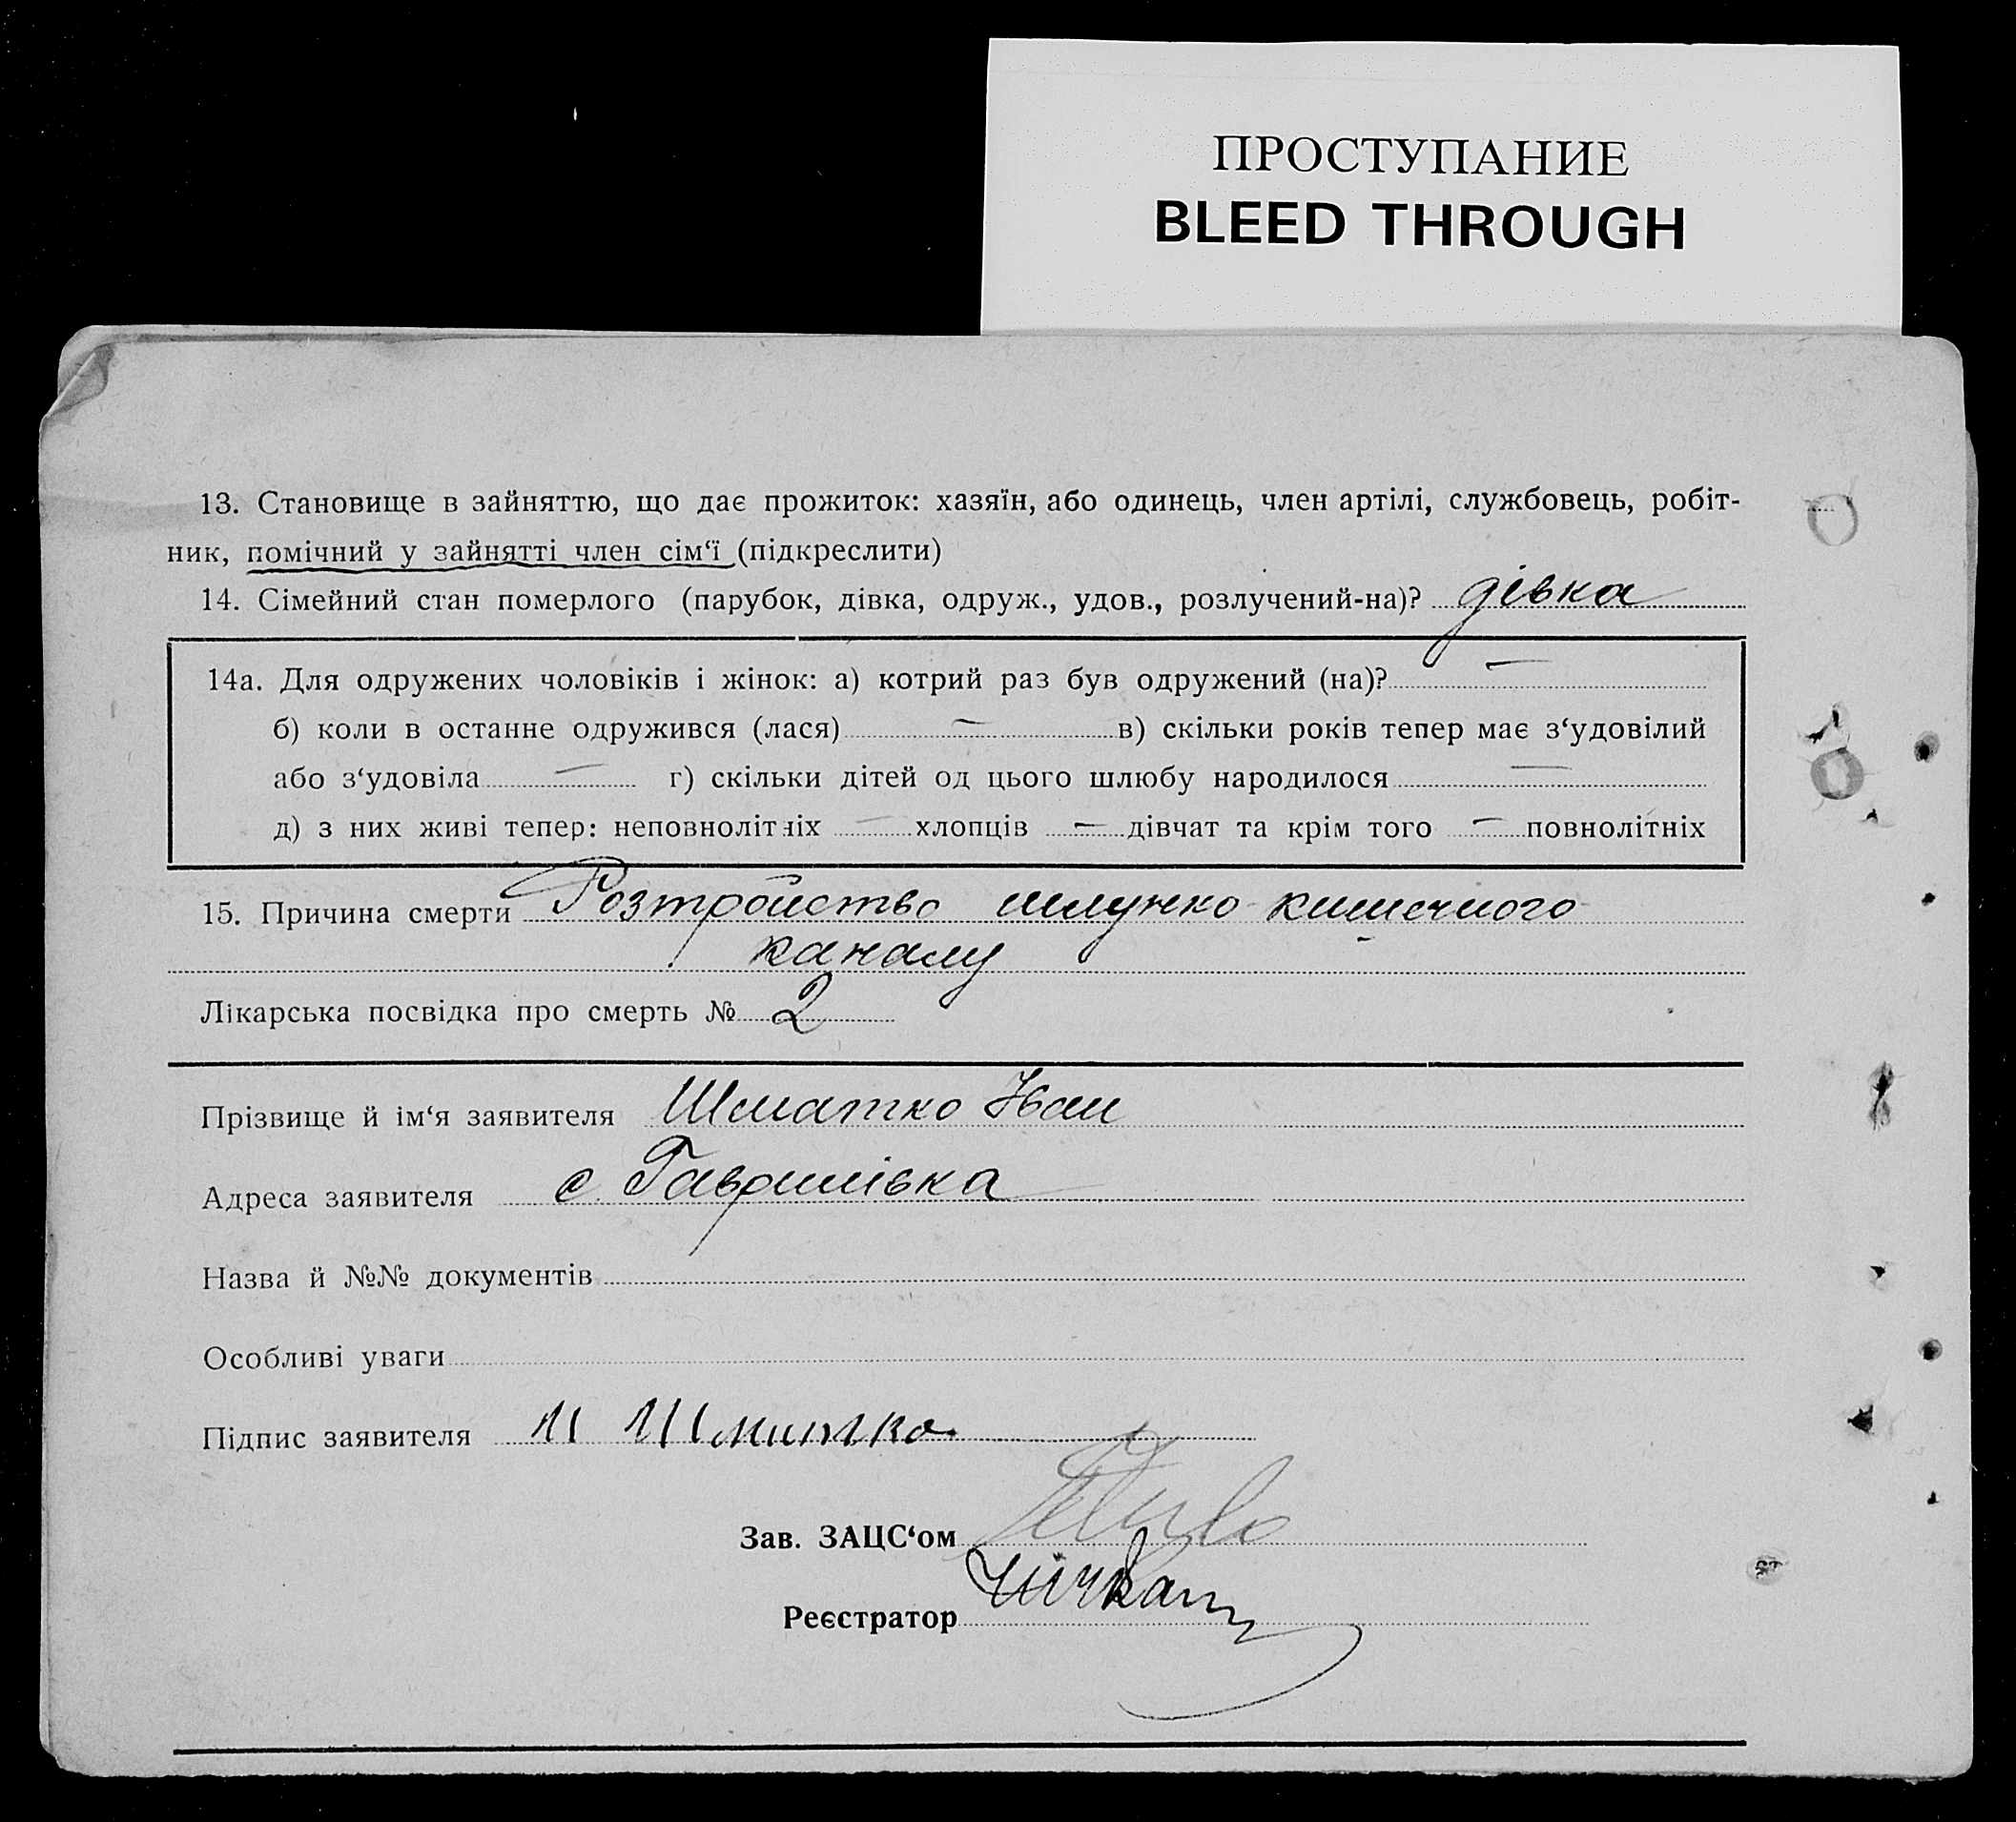 ПРОСТУПАНИЕ
BLEED THROUGH
13. Становище в зайняттю, що дає прожиток: хазяїн, або одинець, член артілі, службовець, робіт-
ник, помічний у зайнятті член сім‘ї (підкреслити)
14. Сімейний стан померлого (парубок, дівка, одруж., удов., розлучений-на)? дівка
14а. Для одружених чоловіків і жінок: а) котрий раз був одружений (на)? —
б) коли в останнє одружився (лася) — в) скільки років тепер має з‘удовілий
або з‘удовіла — г) скільки дітей од цього шлюбу народилося —
д) з них живі тепер: неповнолітніх — хлопців — дівчат та крім того — повнолітніх
15. Причина смерти Розтройство шлунко-кишечного
каналу
Лікарська посвідка про смерть № 2
Прізвище й ім‘я заявителя Шматко Іван
Адреса заявителя с. Гаврилівка
Назва й №№ документів
Особливі уваги
Підпис заявителя И Шматко
Зав. ЗАЦС‘ом
Реєстратор